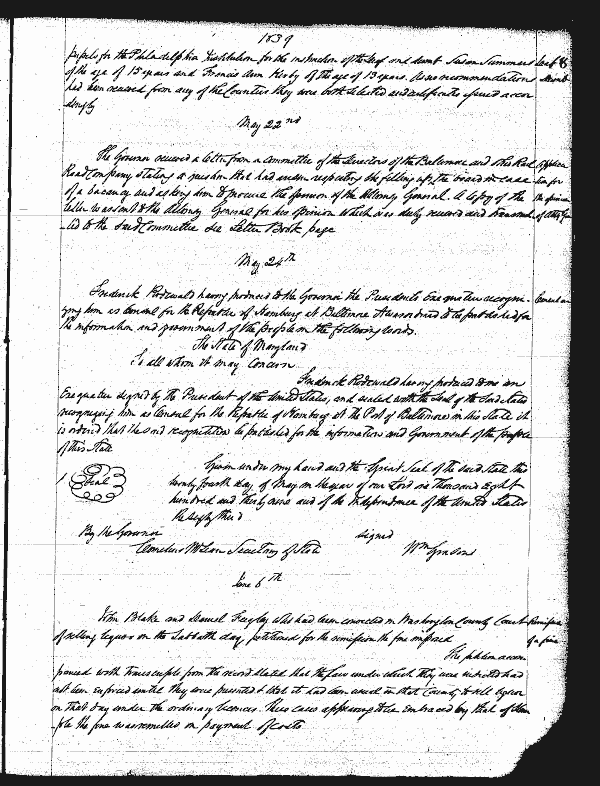 1839
pupils for the Philadelphia Institution for the instruction of the deaf and dumb Susan Summers
of the age of 15 years and Francis Ann Kirby of the age of 13 years. As no recommendations
had been received from any of the Counties they were both selected and certificates issued accor
dingly
May 22nd
The Governor received a letter from a committee of the Directors of the Baltimore and Ohio Rail
Road Company stating a question that had arisen respecting the filling up of the board in case
of a vacancy and asking him to procure the opinion of the Attorney General. A Copy of the
letter was sent to the Attorney General for his opinion which was duly received and transmit
ted to the said Committee see Letter Book page
May 24th
Frederick Rodewald having produced to the Governor the Presidents Exequatur recogni-
zing him as Consul for the Republic of Hamburg at Baltimore It was ordered to be published for
the information and government of the people in the following words.
The State of Maryland
To all whom it may Concern
Frederick Rodewald having produced to me an
Exequatur signed by the President of the United States, and sealed with the Seal of the said States
recognizing him as Consul for the Republic of Hamburg at the Port of Baltimore in this State it
is ordered that the said recognition be published for the information and Government of the people
of this State
Given under my hand and the Great Seal of the said State this
Seal
twenty fourth day of May in the year of our Lord one thousand eight
hundred and thirty nine and of the Independence of the United States
the sixty third
By the Governor
signed
Cornelius McLean Secretary of State
Wm Grason
June 6th
John Blake and Daniel who had been convicted in Washington County Court
of selling liquor on the Sabbath day, petitioned for the remission the fine imposed
of a fine
The petition accom
panied with transcripts from the record stated that the law under which they were indicted had
not been enforced until they were presented & that it had been usual in that County to sell liquor
on that day under the ordinary licences. These cases appearing to be embraced by that of
the fine was remitted on payment of costs